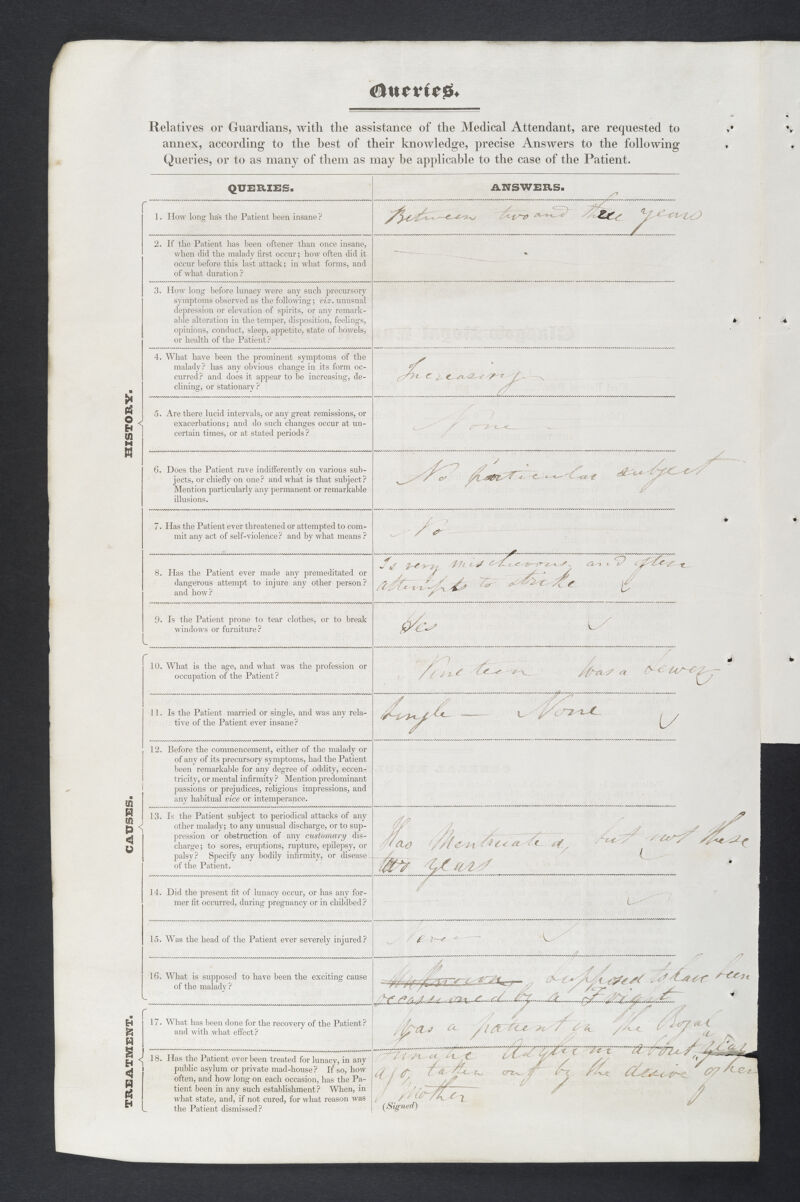 Queries.
Relatives or Guardians, with the assistance of the Medical Attendant, are requested to
annex, according to the best of their knowledge, precise Answers to the following
Queries, or to as many of them as may be applicable to the case of the Patient.
QUERIES.
ANSWERS.
HISTORY.
1. How long has the Patient been insane?
Between two and three years
2. If the Patient has been oftener than once insane,
when did the malady first occur; how often did it
occur before this last attack; in what forms, and
of what duration?
3. How long before lunacy were any such precursory
symptoms observed as the following; viz. unusual
depression or elevation of spirits, or any remark-
able alteration in the temper, disposition, feelings,
opinions, conduct, sleep, appetite, state of bowels,
or health of the Patient?
4. What have been the prominent symptoms of the
malady? has any obvious change in its form oc-
curred? and does it appear to be increasing, de-
clining, or stationary?
Increasing
5. Are there lucid intervals, or any great remissions, or
exacerbations; and do such changes occur at un-
certain times, or at stated periods?
None
6. Does the Patient rave indifferently on various sub-
jects, or chiefly on one? and what is that subject?
Mention particularly any permanent or remarkable
illusions.
No particular subject
7. Has the Patient ever threatened or attempted to com-
mit any act of self-violence? and by what means?
No
8. Has the Patient ever made any premeditated or
dangerous attempt to injure any other person?
and how?
Is very mischievous, and often
attempts to strike
9. Is the Patient prone to tear clothes, or to break
windows or furniture?
Yes
CAUSES.
10. What is the age, and what was the profession or
occupation of the Patient?
Nineteen Was a Sewer
11. Is the Patient married or single, and was any rela-
tive of the Patient ever insane?
Single — None
12. Before the commencement, either of the malady or
of any of its precursory symptoms, had the Patient
been remarkable for any degree of oddity, eccen-
tricity, or mental infirmity? Mention predominant
passions or prejudices, religious impressions, and
any habitual vice or intemperance.
13. Is the Patient subject to periodical attacks of any
other malady; to any unusual discharge, or to sup-
pression or obstruction of any customary dis-
charge; to sores, eruptions, rupture, epilepsy, or
palsy? Specify any bodily infirmity, or disease
of the Patient.
Has Menstruated, but not these
two years
14. Did the present fit of lunacy occur, or has any for-
mer fit occurred, during pregnancy or in childbed?
15. Was the head of the Patient ever severely injured?
Never
16. What is supposed to have been the exciting cause
of the malady?
Unknown Supposed to have been
occasioned by a Fright
TREATMENT.
17. What has been done for the recovery of the Patient?
and with what effect?
Was a patient in the Royal
18. Has the Patient ever been treated for lunacy, in any
public asylum or private mad-house? If so, how
often, and how long on each occasion, has the Pa-
tient been in any such establishment? When, in
what state, and, if not cured, for what reason was
the Patient dismissed?
Lunatic Asylum about a year
ago, taken out by the desire of her
Mother
(Signed)